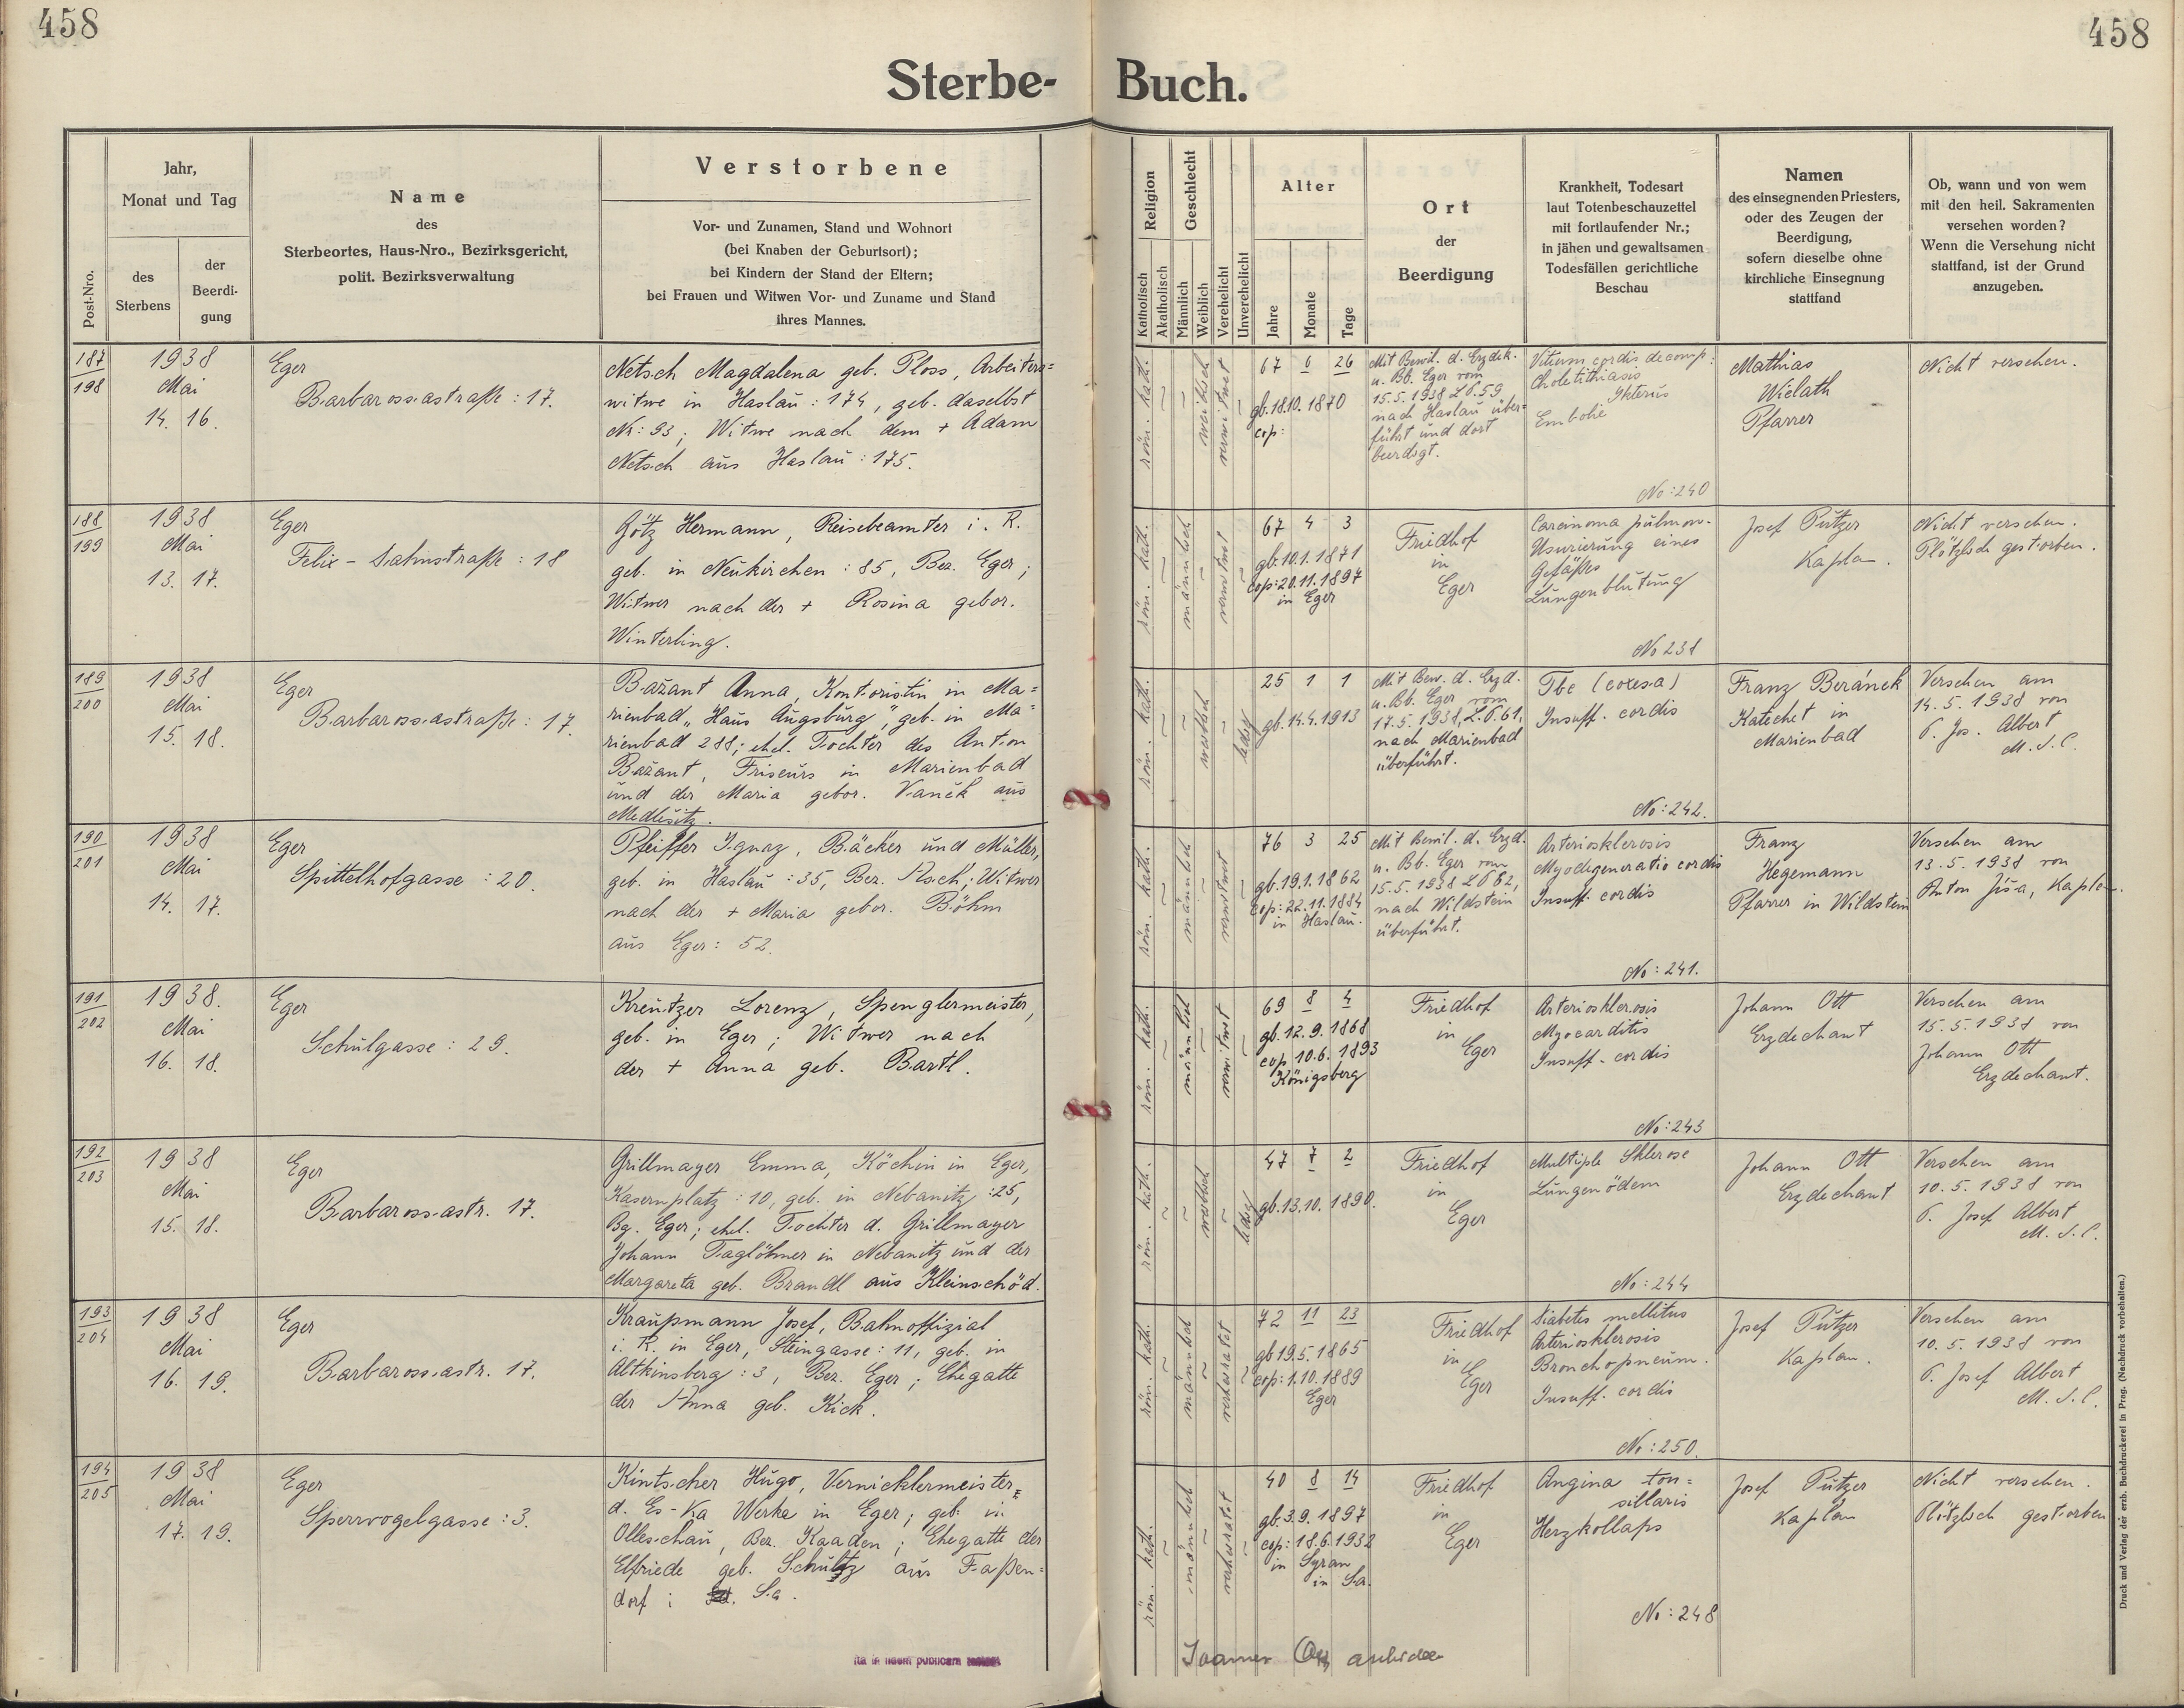 458
458
Sterbe- Buch.
Post-Nro.
Jahr,
Monat und Tag
des
Sterbens
der
Beerdi-
gung
Name
des
Sterbeortes, Haus-Nro., Bezirksgericht,
polit. Bezirksverwaltung
Verstorbene
Vor- und Zunamen, Stand und Wohnort
(bei Knaben der Geburtsort);
bei Kindern der Stand der Eltern;
bei Frauen und Witwen Vor- und Zuname und Stand
ihres Mannes.
Religion
Katholisch
Akatholisch
Geschlecht
Männlich
Weiblich
Verehelicht
Unverehelicht
Alter
Jahre
Monate
Tage
Ort
der
Beerdigung
Krankheit, Todesart
laut Totenbeschauzettel
mit fortlaufender Nr.;
in jähen und gewaltsamen
Todesfällen gerichtliche
Beschau
Namen
des einsegnenden Priesters,
oder des Zeugen der
Beerdigung,
sofern dieselbe ohne
kirchliche Einsegnung
stattfand
Ob, wann und von wem
mit den heil. Sakramenten
versehen worden?
Wenn die Versehung nicht
stattfand, ist der Grund
anzugeben.
187
198
1938
Mai
14. 16.
Eger
Barbarossastraße : 17.
Netsch Magdalena geb. Ploss, Arbeiters=
witwe in Haslau : 174, geb. daselbst
Nr: 93; Witwe nach dem + Adam
Netsch aus Haslau : 175.
röm. kath.
weiblich
verwitwet
67 6 26
gb. 18.10.1870
cop:
Mit Bewil. d. Erzdek.
u. Bb. Eger vom
15.5.1938 L.P. 59
nach Haslau über=
führt und dort
beerdigt.
Vitium cordis decomp:
Choletithiasis
Ikterus
Embolie
No: 240
Mathias
Wielath
Pfarrer
Nicht versehen.
188
199
1938
Mai
13. 17.
Eger
Felix-Dahnstraße : 18
Götz Hermann, Reisebeamter i. R.
geb. in Neukirchen : 85, Bez. Eger;
Witwer nach der + Rosina gebor.
Winterling.
röm. kath.
männlich
verwitwet
67 4 3
gb. 10.1.1871
cop: 20.11.1897
in Eger
Friedhof
in
Eger
Carcinoma pulmon.
Usurierung eines
Gefäßes
Lungenblutung
No 238
Josef Pützer
Kaplan.
Nicht versehen.
Plötzlich gestorben.
189
200
1938
Mai
15. 18.
Eger
Barbarossastraße : 17.
Bažant Anna, Kontoristin in Ma=
rienbad „Haus Augsburg", geb. in Ma=
rienbad 288; ehel. Tochter des Anton
Bažant, Friseurs in Marienbad
und der Maria gebor. Vaněk aus
Medlešitz.
röm. kath.
weiblich
ledig
25 1 1
gb. 14.4.1913
Mit Bew. d. Erzd.
u. Bb. Eger vom
17.5.1938, L.P. 61,
nach Marienbad
überführt.
Tbc (coxesa)
Insuff. cordis
No: 242.
Franz Beránek
Katechet in
Marienbad
Versehen am
14.5.1938 von
P. Jos. Albert
M. S. C.
190
201
1938
Mai
14. 17.
Eger
Spittelhofgasse : 20.
Pfeiffer Ignaz, Bäcker und Müller,
geb. in Haslau : 35, Bez. Asch; Witwer
nach der + Maria gebor. Böhm
aus Eger: 52.
röm. kath.
männlich
verwitwet
76 3 25
gb. 19.1.1862
cop: 22.11.1884
in Haslau.
Mit Bewil. d. Erzd.
u. Bb. Eger vom
15.5.1938 L.P. 62,
nach Wildstein
überführt.
Arteriosklerosis
Myodigeneratio cordis
Insuff. cordis
No: 241.
Franz
Hegemann
Pfarrer in Wildstein
Versehen am
13.5.1938 von
Anton Jíša, Kaplan.
191
202
1938.
Mai
16. 18.
Eger
Schulgasse : 29.
Kreutzer Lorenz, Spenglermeister,
geb. in Eger; Witwer nach
der + Anna geb. Bartl.
röm. kath.
männlich
verwitwet
69 8 4
gb. 12.9.1868
cop 10.6.1893
Königsberg
Friedhof
in
Eger
Arteriosklerosis
Myocarditis
Insuff. cordis
No: 243
Johann Ott
Erzdechant
Versehen am
15.5.1938 von
Johann Ott
Erzdechant.
192
203
1938
Mai
15. 18.
Eger
Barbarossastr. 17.
Grillmayer Emma, Köchin in Eger,
Kasernplatz : 10, geb. in Nebanitz : 25,
Bz. Eger; ehel. Tochter d. Grillmayer
Johann Taglöhner in Nebanitz und der
Margareta geb. Brandl aus Kleinschöd.
röm. kath.
weiblich
ledig
47 7 2
gb. 13.10.1890.
Friedhof
in
Eger
Multiple Sklerose
Lungenödem
No: 244
Johann Ott
Erzdechant
Versehen am
10.5.1938 von
P. Josef Albert
M. S. C.
193
204
1938
Mai
16. 19.
Eger
Barbarossastr. 17.
Kraupmann Josef, Bahnoffizial
i. R. in Eger, Steingasse : 11, geb. in
Altkinsberg : 3, Bez. Eger; Ehegatte
der Anna geb. Kick.
röm. kath.
männlich
verheiratet
72 11 23
gb 19.5.1865
cop: 1.10.1889
Eger
Friedhof
in
Eger
Diabetes mellitus
Arteriosklerosis
Bronchopneum.
Insuff. cordis
No: 250.
Josef Pützer
Kaplan.
Versehen am
10.5.1938 von
P. Josef Albert
M. S. C.
194
205
1938
Mai
17. 19.
Eger
Sperrvogelgasse : 3.
Kintscher Hugo, Vernicklermeister
d. Es-Ka Werke in Eger; geb. in
Olleschau, Bez. Kaaden; Ehegatte der
Elfriede geb. Schultz aus Faßen=
dorf i. Sa.
röm. kath.
männlich
verheiratet
40 8 14
gb. 3.9.1897
cop: 18.6.1932
in Syran
in Sa.
Friedhof
in
Eger
Angina ton=
sillaris
Herzkollaps
No: 248
Josef Pützer
Kaplan
Nicht versehen.
Plötzlich gestorben
Ita in fidem publicam testatur
Joannes Ott
Druck und Verlag der erzb. Buchdruckerei in Prag. (Nachdruck vorbehalten.)